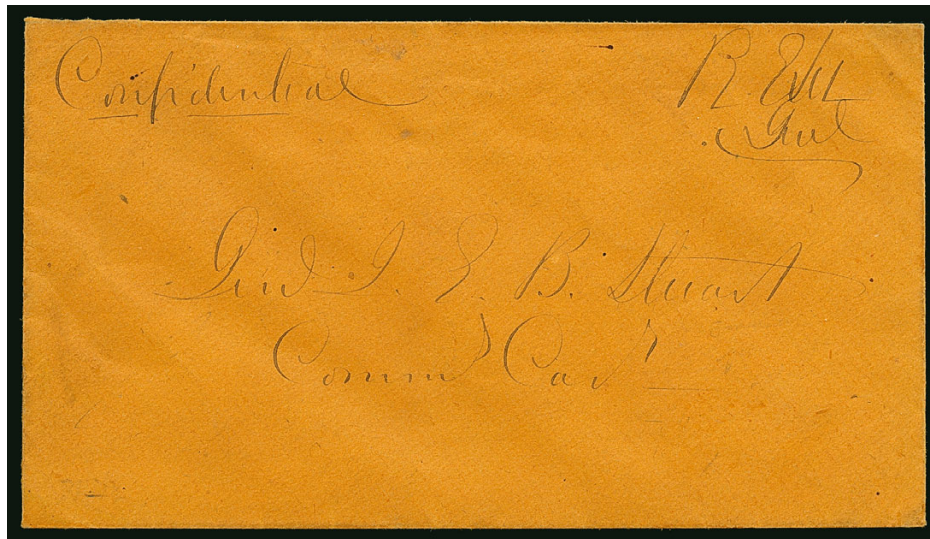 Confidential
R. E. Lee
Genl
Genl J. E. B. Stuart
Commd Cavy